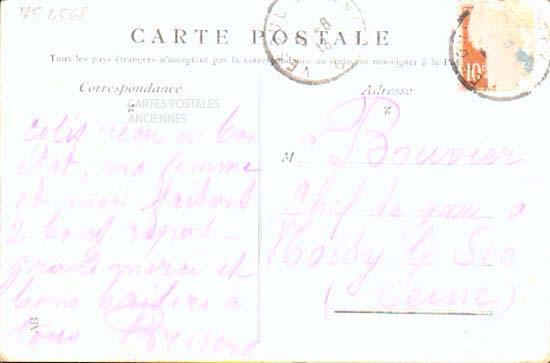 754568
CARTE POSTALE
Tous les pays étrangers n'acceptent pas la correspondance au recto se renseigner à la
Correspondance
Adresse
CARTES POSTALES
ANCIENNES
10c
colis reçu en bon
état, ma femme
et moi faisons
2 bons repas
grand merci et
bons baisers à
tous
M. Bouvier
Chef de gare à
Noisy le Sec
(Seine)
AB